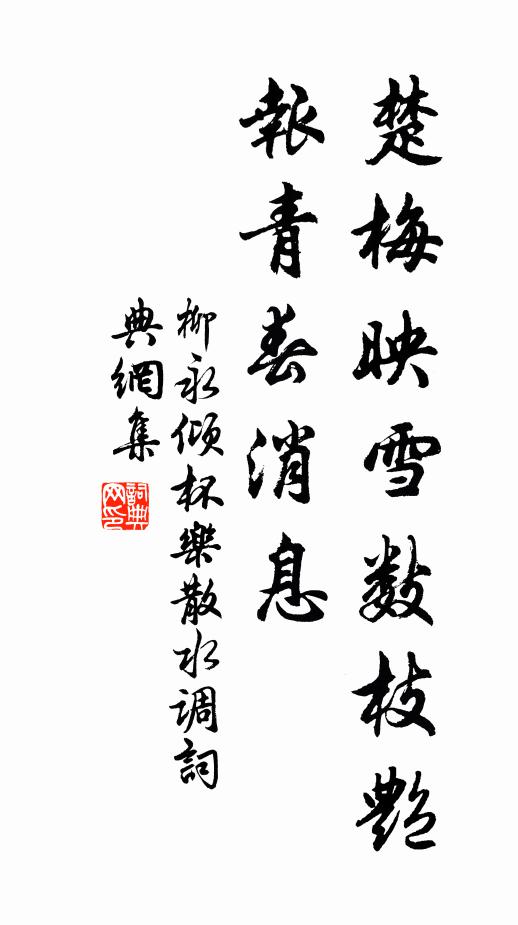 楚梅映雪数枝艷
報青春消息
柳永傾杯樂散水调詞
典網集
詞典
网印